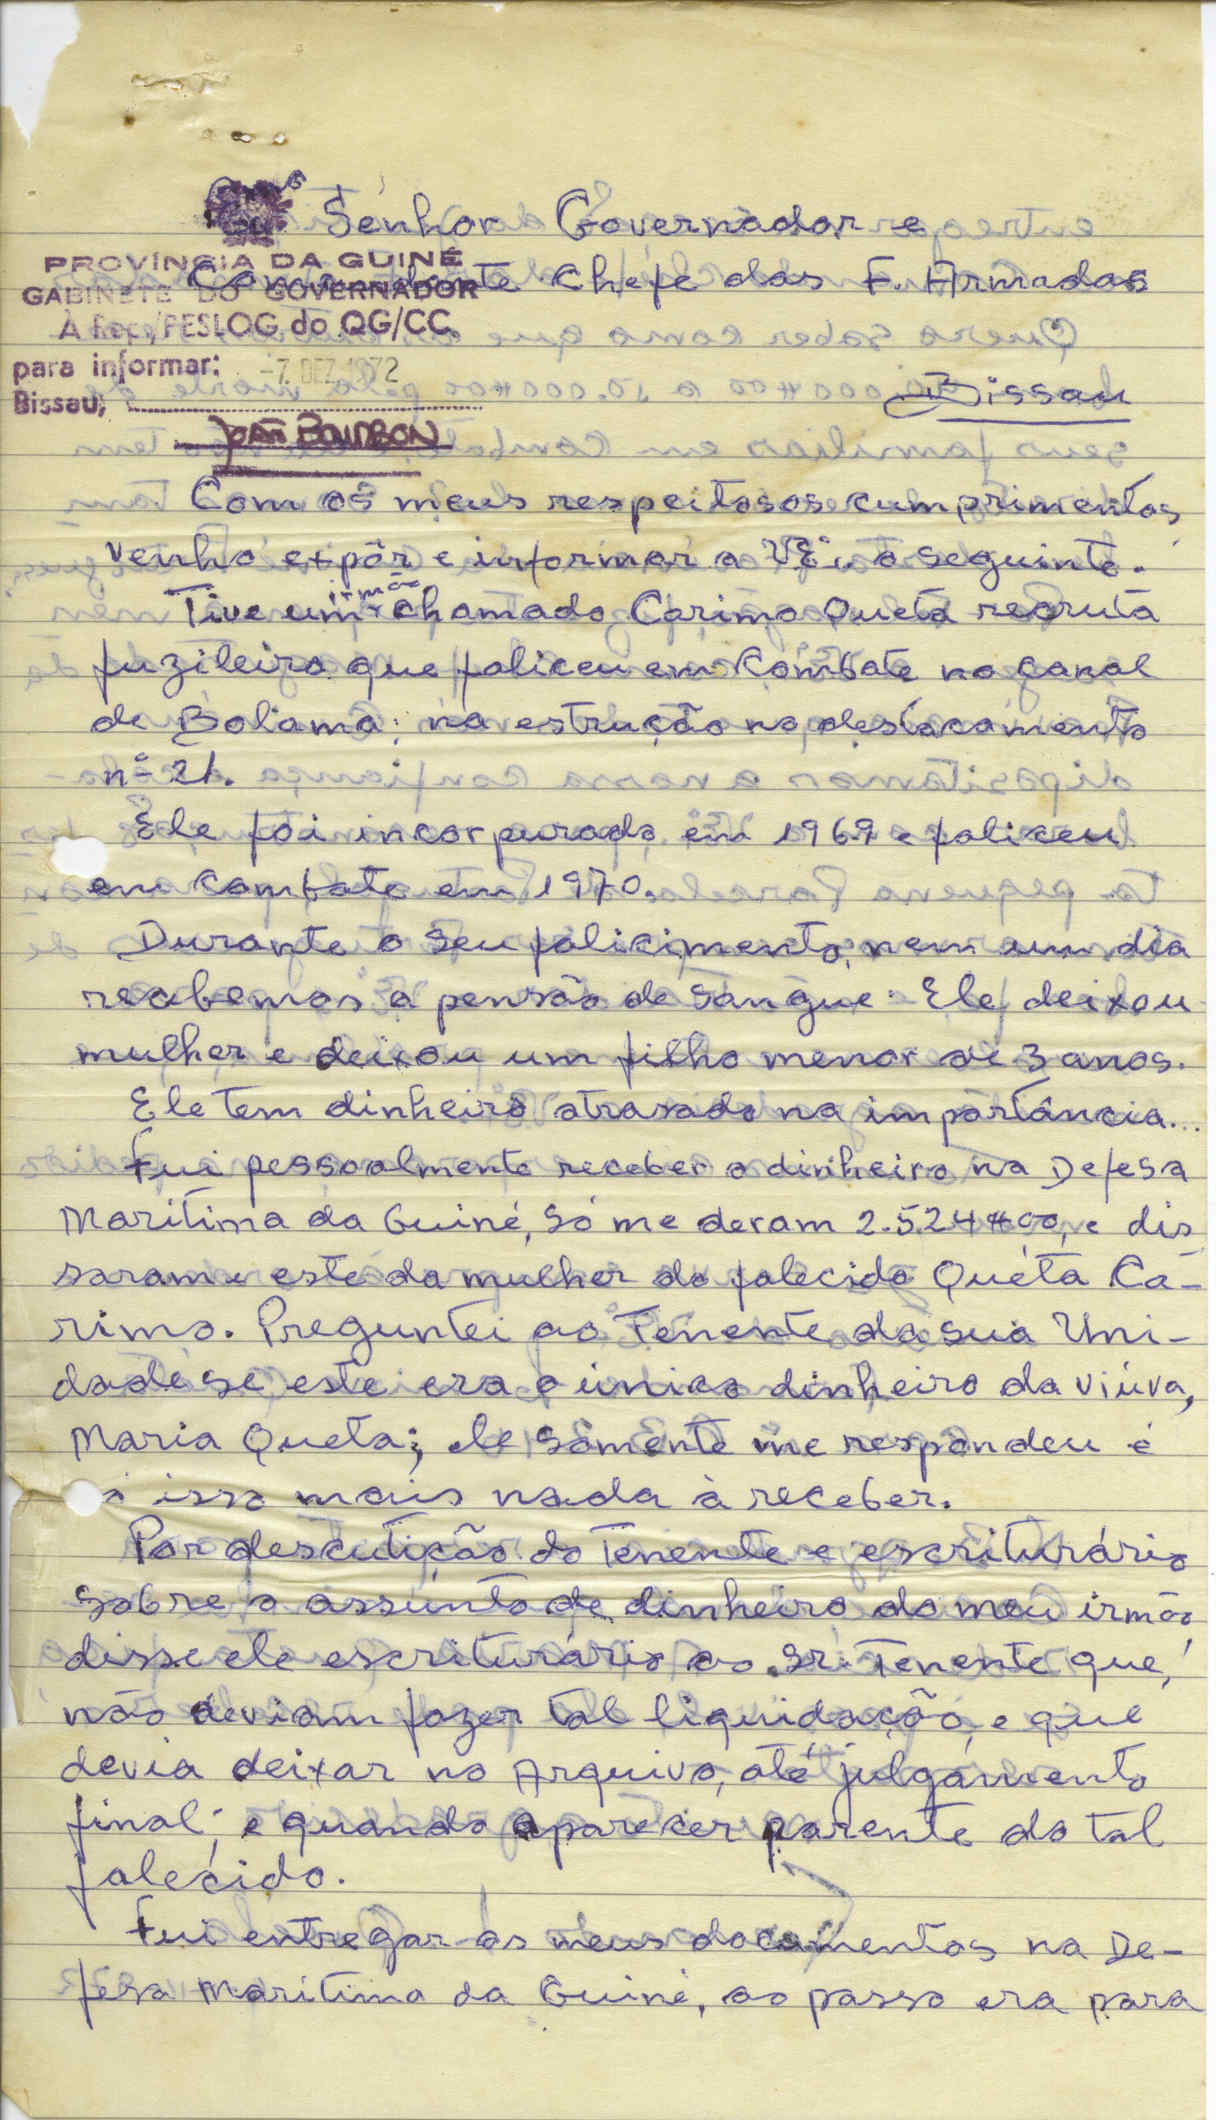 Senhor Governador e
PROVÍNCIA DA GUINÉ
Comandante Chefe das F. Armadas
GABINETE DO GOVERNADOR
À Rep/PESLOG do QG/CC
para informar: -7 DEZ 1972
Bissau,
Bissau
João BOURBON
Com os meus respeitosos cumprimentos
venho expôr e informar a V. Eª o seguinte.
Tive um irmão chamado Carimo Queta recruta
fuzileiro que faliceu em combate no canal
de Bolama; na estrução no destacamento
nº 21.
Ele foi incorpurado em 1969 e faliceu
em combate em 1970.
Durante o seu falicimento, nem um dia
recebemos a pensão de sangue. Ele deixou
mulher e deixou um filho menor de 3 anos.
Ele tem dinheiro atrasado na importância...
Fui pessoalmente receber o dinheiro na Defesa
Maritima da Guiné, só me deram 2.524$00, e dis
saram e este da mulher do falecido Quéta Ca-
rimo. Preguntei ao Tenente da sua Uni-
dade se este era o único dinheiro da viúva,
Maria Queta; ele sómente me respondeu é
isso mais nada à receber.
Por descutição do Tenente e escriturário
sobre o assunto de dinheiro do meu irmão,
disse ele escriturário ao Sr. Tenente que,
não deviam fazer tal liquidação, e que
devia deixar no Arquivo, até julgamento
final; e quando aparecer parente do tal
falecido.
Fui entregar os meus documentos na De-
fesa Maritima da Guiné, ao passo era para